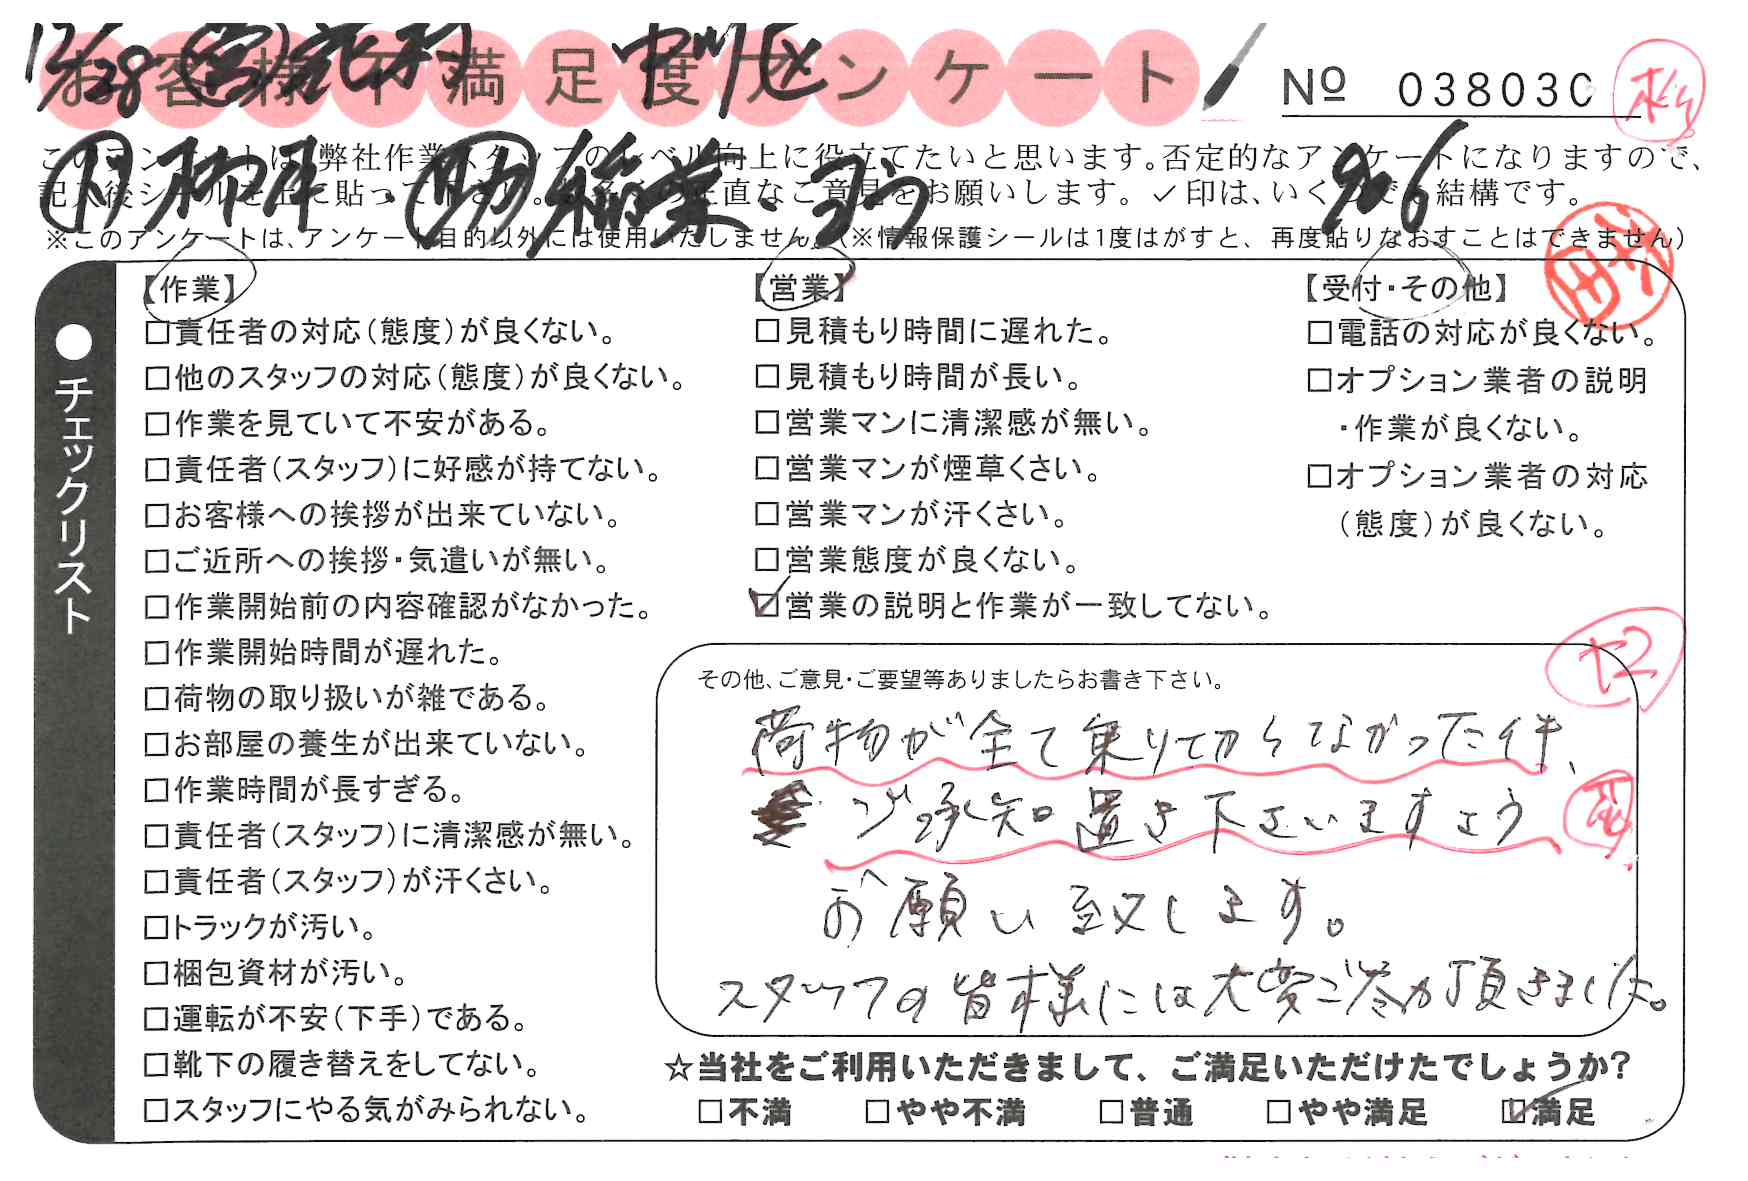 12/28
お客様不満足度アンケート
中川区
№ 03803C
このアンケートは、弊社作業スタッフのレベル向上に役立てたいと思います。否定的なアンケートになりますので、
記入後シールを上に貼って下さい。お客様の正直なご意見をお願いします。✓印は、いくつでも結構です。
906
※このアンケートは、アンケート目的以外には使用いたしません。(※情報保護シールは1度はがすと、再度貼りなおすことはできません)
●チェックリスト
【作業】
□責任者の対応(態度)が良くない。
□他のスタッフの対応(態度)が良くない。
□作業を見ていて不安がある。
□責任者(スタッフ)に好感が持てない。
□お客様への挨拶が出来ていない。
□ご近所への挨拶・気遣いが無い。
□作業開始前の内容確認がなかった。
□作業開始時間が遅れた。
□荷物の取り扱いが雑である。
□お部屋の養生が出来ていない。
□作業時間が長すぎる。
□責任者(スタッフ)に清潔感が無い。
□責任者(スタッフ)が汗くさい。
□トラックが汚い。
□梱包資材が汚い。
□運転が不安(下手)である。
□靴下の履き替えをしてない。
□スタッフにやる気がみられない。
【営業】
□見積もり時間に遅れた。
□見積もり時間が長い。
□営業マンに清潔感が無い。
□営業マンが煙草くさい。
□営業マンが汗くさい。
□営業態度が良くない。
☑営業の説明と作業が一致してない。
【受付・その他】
□電話の対応が良くない。
□オプション業者の説明
・作業が良くない。
□オプション業者の対応
(態度)が良くない。
その他、ご意見・ご要望等ありましたらお書き下さい。
荷物が全て乗りてからなかった件、
ご承知置き下さいますよう
お願い致します。
スタッフの皆様には大変ご尽力頂きました。
☆当社をご利用いただきまして、ご満足いただけたでしょうか?
□不満 □やや不満 □普通 □やや満足 ☑満足